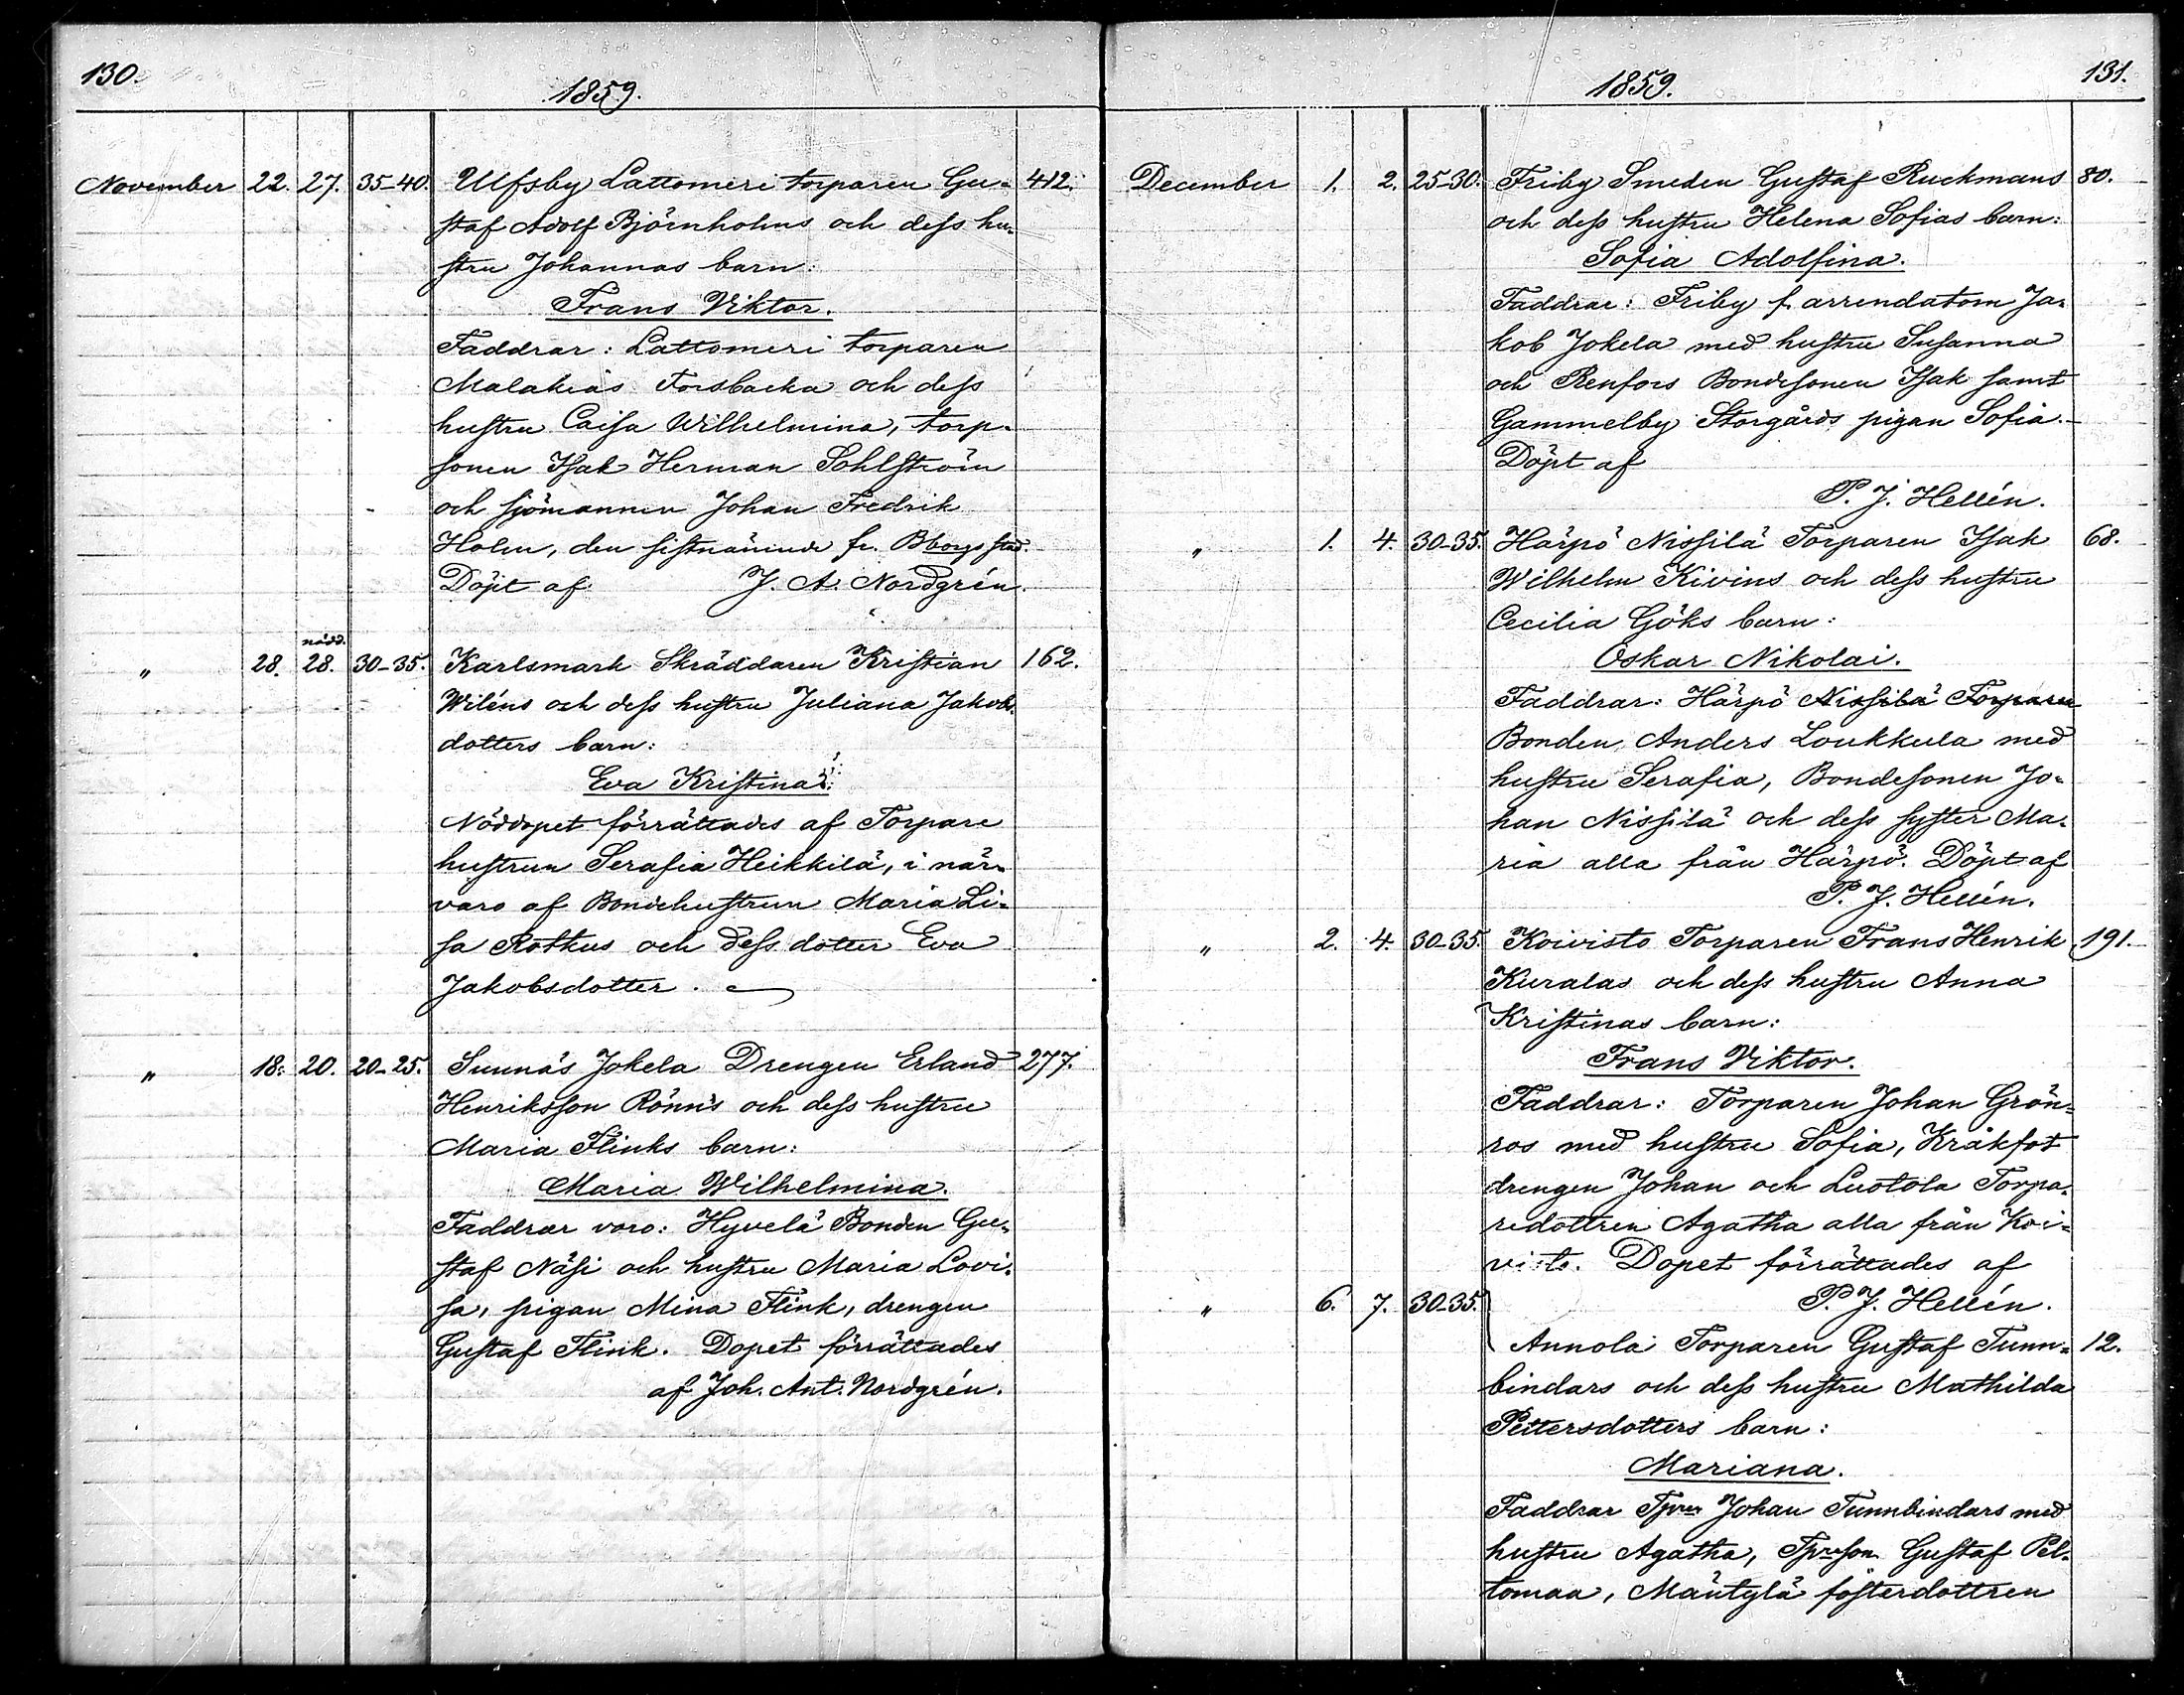 130.
1859.
November 22. 27. 35-40. Ulfsby Lattomeri torparen Gu- 412.
staf Adolf Björnholms och dess hu-
stru Johannas barn:
Frans Viktor.
Faddrar: Lattomeri torparen
Malakias Forsbacka och dess
hustru Caisa Wilhelmina, torp-
sonen Isak Herman Sohlström
och sjömannen Johan Fredrik
Holm, den sistnämnde fr. Bborgs stad.
Döpt af J. A. Nordgrén.
nödd.
" 28. 28. 30-35. Karlsmark Skräddaren Kristian 162.
Wiléns och dess hustru Juliana Jakobs-
dotters barn:
Eva Kristina
Nöddopet förrättades af Torpare
hustrun Serafia Heikkilä, i när-
varo af Bondehustrun Maria Li-
sa Rotkus och dess dotter Eva
Jakobsdotter.
" 18. 20. 20-25. Sunnäs Jokela Drengen Erland 277.
Henriksson Rönns och dess hustru
Maria Flinks barn:
Maria Wilhelmina.
Faddrar voro: Hyvelä Bonden Gu-
staf Näsi och hustru Maria Lovi-
sa, pigan Mina Flink, drengen
Gustaf Flink. Dopet förrättades
af Joh. Ant. Nordgrén.
131.
1859.
December 1. 2. 25-30. Friby Smeden Gustaf Ruckmans 80.
och dess hustru Helena Sofias barn:
Sofia Adolfina.
Faddrar: Friby f. arrendatorn Ja-
kob Jokela med hustru Susanna
och Renfors Bondesonen Isak samt
Gammelby Storgårds pigan Sofia.
Döpt af
P. J. Hellén.
" 1. 4. 30-35. Härpö Nissilä Torparen Isak 68.
Wilhelm Kivins och dess hustru
Cecilia Göks barn:
Oskar Nikolai.
Faddrar: Härpö Nissilä Torparen
Bonden Anders Loukkula med
hustru Serafia, Bondesonen Jo-
han Nissilä och dess syster Ma-
ria alla från Härpö. Döpt af
P. J. Hellén.
" 2. 4. 30-35. Koivisto Torparen Frans Henrik 191.
Kuralas och dess hustru Anna
Kristinas barn:
Frans Viktor.
Faddrar: Torparen Johan Grön-
ros med hustru Sofia, Kråkfot
drengen Johan och Luotola Torpa-
redottren Agatha alla från Koi-
visto. Dopet förrättades af
" 6. 7. 30-35. P. J. Hellén.
Annola Torparen Gustaf Tunn- 12.
bindars och dess hustru Mathilda
Pettersdotters barn:
Mariana.
Faddrar Tpren Johan Tunnbindars med
hustru Agatha, Tpreson Gustaf Pel-
tomaa, Mäntylä fosterdottren